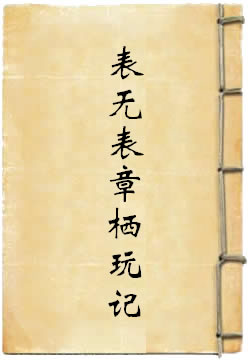 表无表章栖玩记